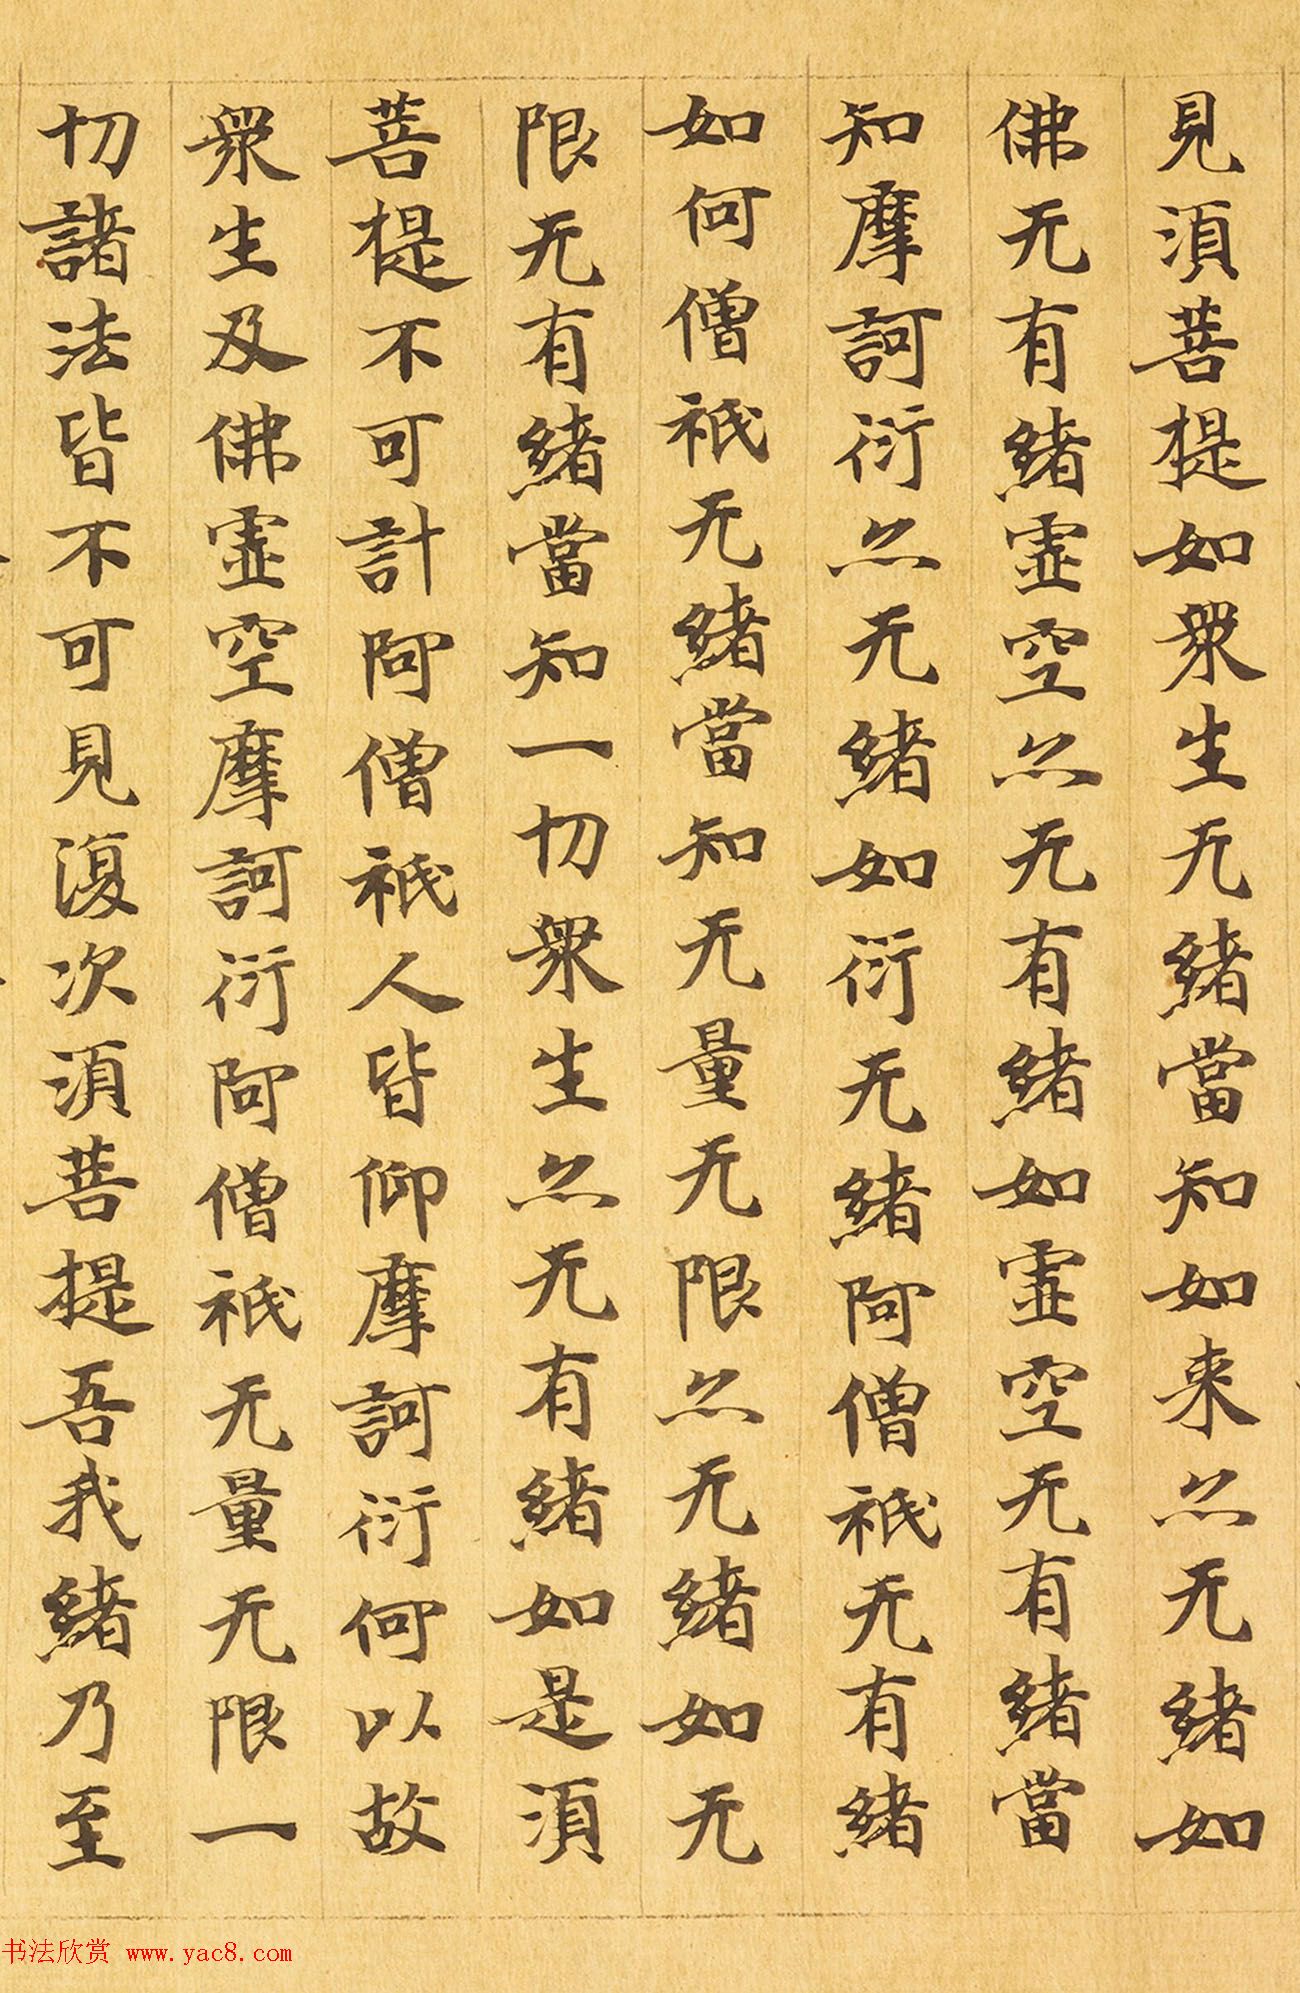 見湏菩提如衆生无緒當知如来亦无緒如
佛无有緒虛空亦无有緒如虛空无有緒當
知摩訶衍亦无緒如衍无緒阿僧祇无有緒
如何僧祇无緒當知无量无限亦无緒如无
限无有緒當知一切衆生亦无有緒如是湏
菩提不可計阿僧祇人皆仰摩訶衍何以故
衆生及佛虛空摩訶衍阿僧祇无量无限一
切諸法皆不可見復次湏菩提吾我緒乃至
书法欣赏 www.yac8.com